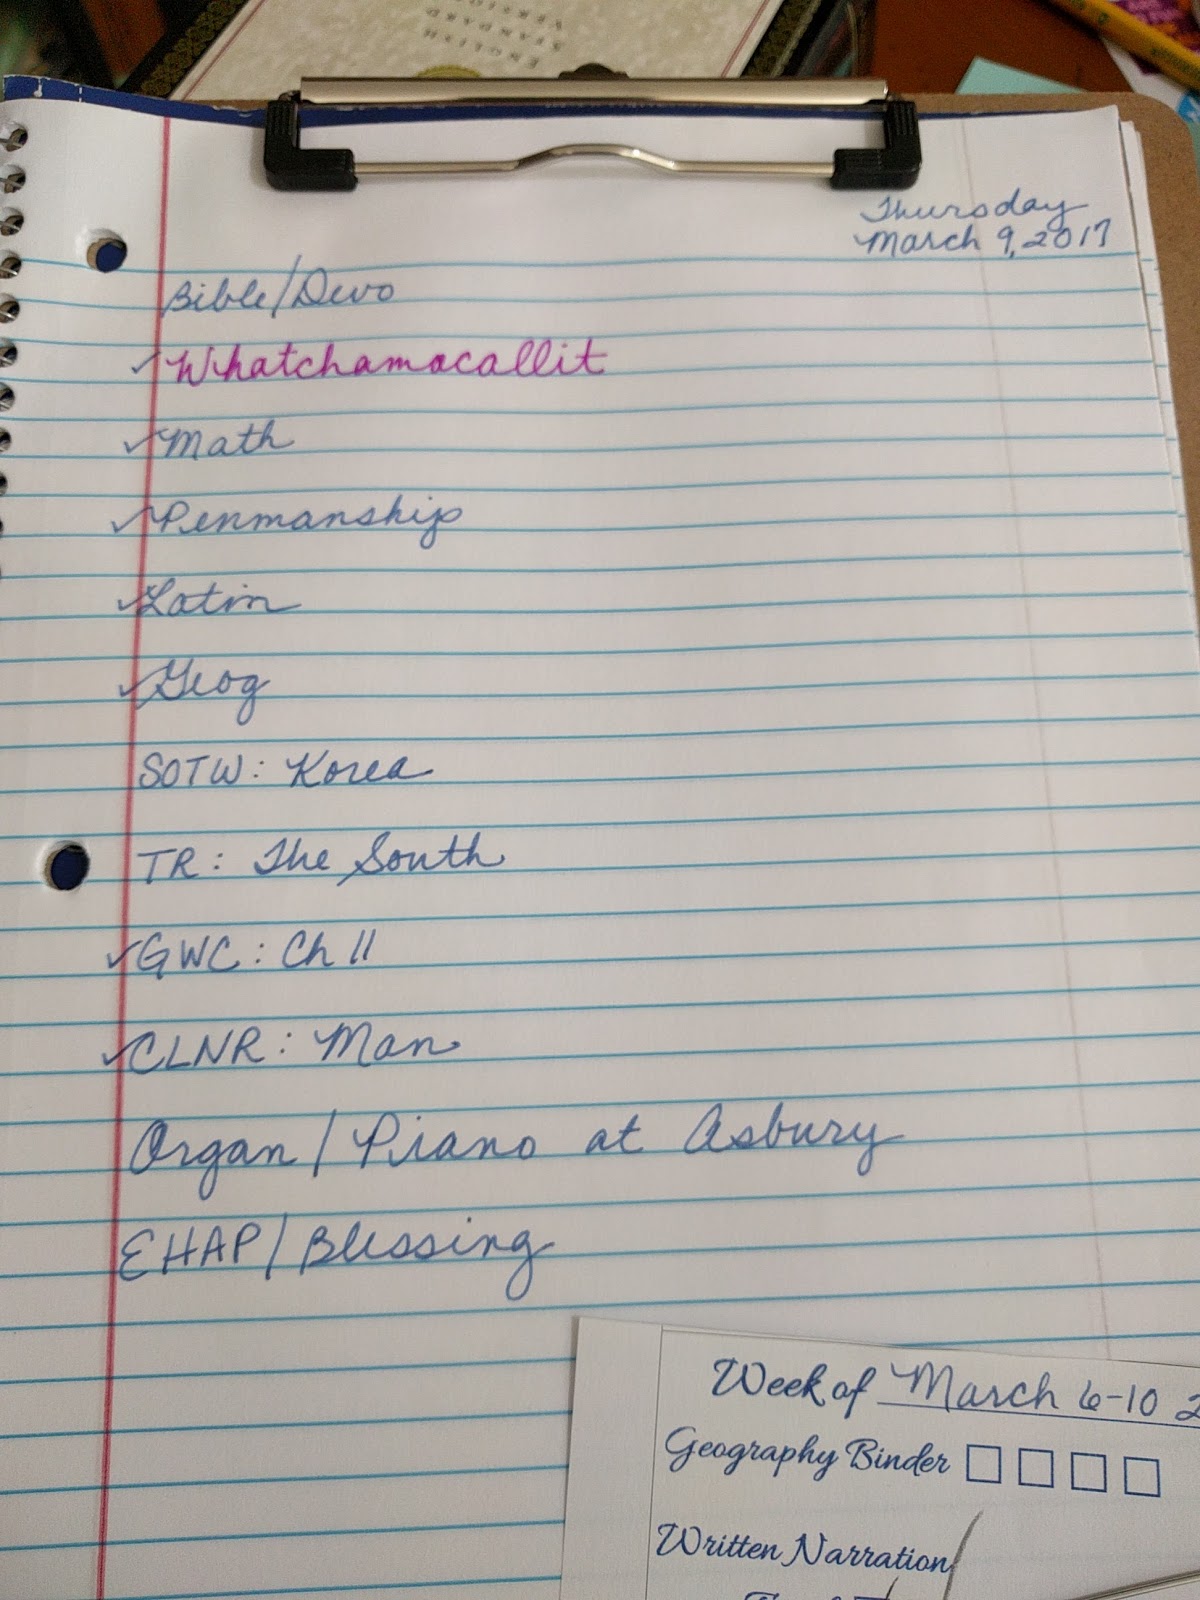 ENGLISH
STANDARD
VERSION
Thursday
March 9, 2017
Bible/Devo
✓ Whatchamacallit
✓ Math
✓ Penmanship
✓ Latin
✓ Geog
SOTW: Korea
TR: The South
✓ GWC: Ch 11
✓ CLNR: Man
Organ/Piano at Asbury
EHAP/Blessing
Week of March 6-10 2
Geography Binder □ □ □ □
Written Narration